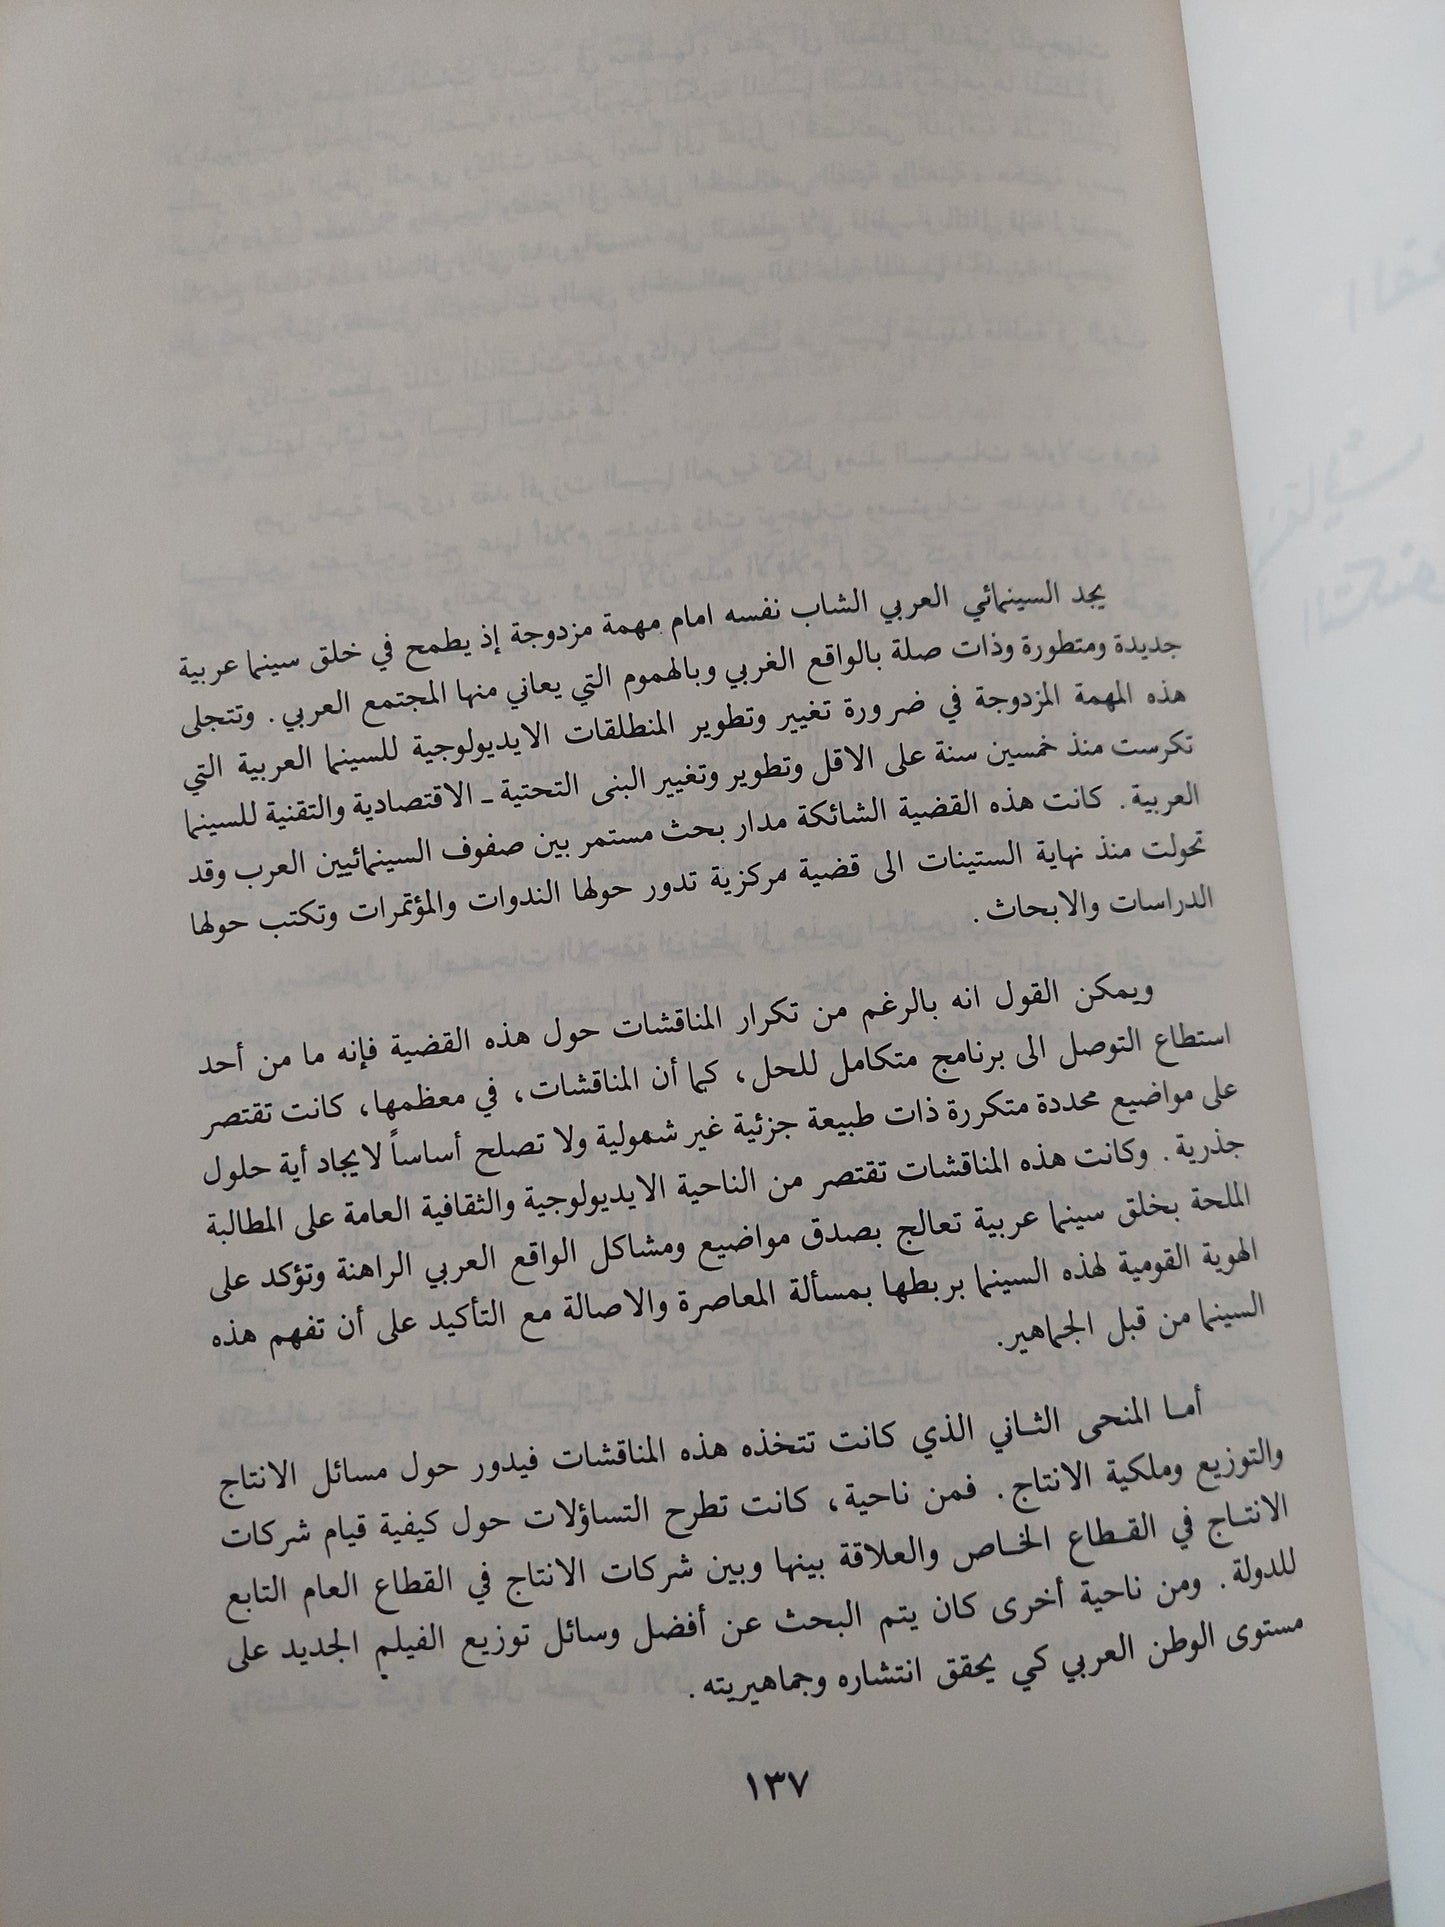 يجد السينمائي العربي الشاب نفسه امام مهمة مزدوجة إذ يطمح في خلق سينما عربية
جديدة ومتطورة وذات صلة بالواقع الغربي وبالهموم التي يعاني منها المجتمع العربي. وتتجلى
هذه المهمة المزدوجة في ضرورة تغيير وتطوير المنطلقات الايديولوجية للسينما العربية التي
تكرست منذ خمسين سنة على الاقل وتطوير وتغيير البنى التحتية ـ الاقتصادية والتقنية للسينما
العربية. كانت هذه القضية الشائكة مدار بحث مستمر بين صفوف السينمائيين العرب وقد
تحولت منذ نهاية الستينات الى قضية مركزية تدور حولها الندوات والمؤتمرات وتكتب حولها
الدراسات والابحاث.
ويمكن القول انه بالرغم من تكرار المناقشات حول هذه القضية فإنه ما من أحد
استطاع التوصل الى برنامج متكامل للحل، كما أن المناقشات، في معظمها، كانت تقتصر
على مواضيع محددة متكررة ذات طبيعة جزئية غير شمولية ولا تصلح أساساً لايجاد أية حلول
جذرية. وكانت هذه المناقشات تقتصر من الناحية الايديولوجية والثقافية العامة على المطالبة
الملحة بخلق سينما عربية تعالج بصدق مواضيع ومشاكل الواقع العربي الراهنة وتؤكد على
الهوية القومية لهذه السينما بربطها بمسألة المعاصرة والاصالة مع التأكيد على أن تفهم هذه
السينما من قبل الجماهير.
أما المنحى الثاني الذي كانت تتخذه هذه المناقشات فيدور حول مسائل الانتاج
والتوزيع وملكية الانتاج. فمن ناحية، كانت تطرح التساؤلات حول كيفية قيام شركات
الانتاج في القطاع الخاص والعلاقة بينها وبين شركات الانتاج في القطاع العام التابع
للدولة. ومن ناحية أخرى كان يتم البحث عن أفضل وسائل توزيع الفيلم الجديد على
مستوى الوطن العربي كي يحقق انتشاره وجماهيريته.
١٣٧